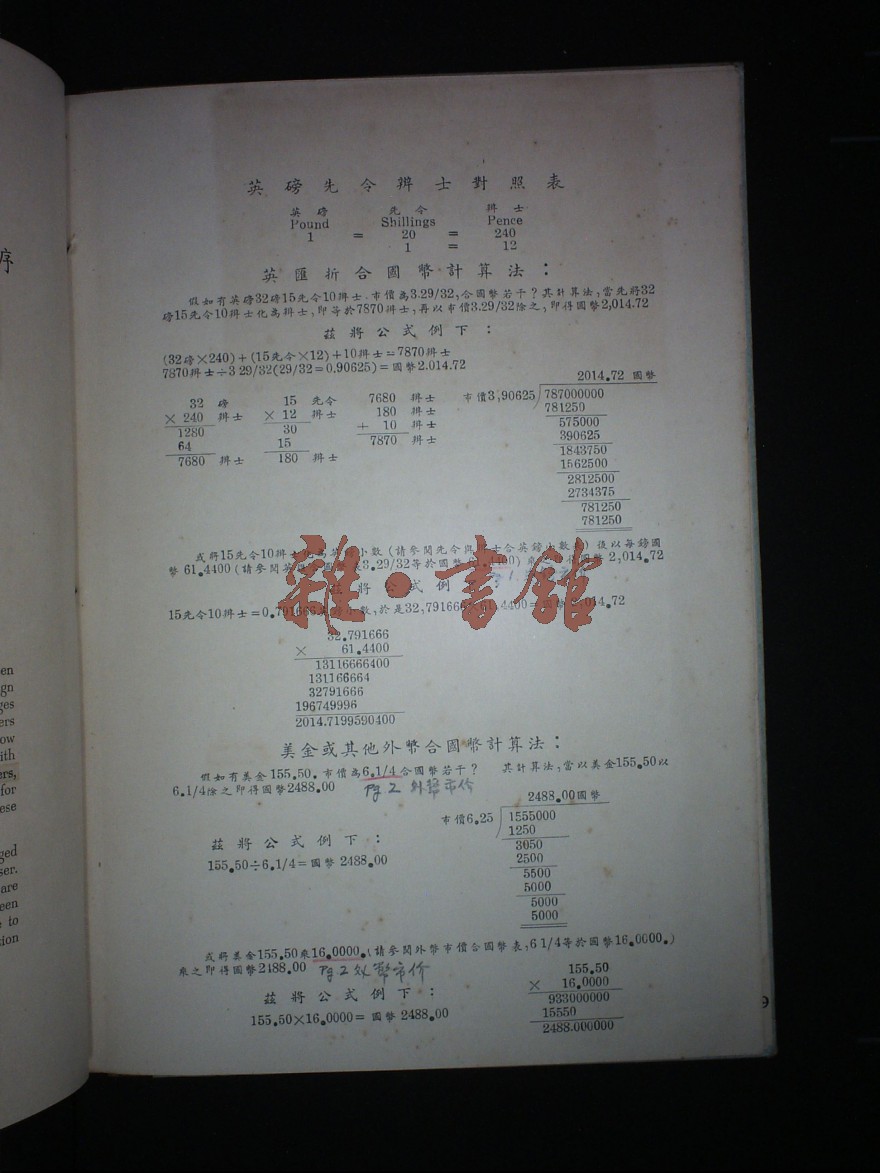 序
en
gn
ges
ers
ow
ith
ers,
for
ese
ged
ser.
are
een
to
tion
英磅先令辨士對照表
英磅 先令 辨士
Pound Shillings Pence
1 = 20 = 240
1 = 12
英匯折合國幣計算法：
假如有英磅32磅15先令10辨士.市價為3.29/32,合國幣若干？其計算法,當先將32
磅15先令10辨士化為辨士,即等於7870辨士,再以市價3.29/32除之,即得國幣2,014.72
茲將公式例下：
(32磅×240)+(15先令×12)+10辨士=7870辨士
7870辨士÷3 29/32(29/32=0.90625)=國幣2.014.72
32 磅
× 240 辨士
1280
64
7680 辨士
15 先令
× 12 辨士
30
15
180 辨士
7680 辨士
180 辨士
+ 10 辨士
7870 辨士
2014.72 國幣
市價3,90625 787000000
781250
575000
390625
1843750
1562500
2812500
2734375
781250
781250
或將15先令10辨士化為英 小數(請參閱先令與 士合英鎊小數 )後以每鎊國
幣61.4400(請參閱英 3.29/32等於國幣 400)乘 國幣2,014.72
茲將公式例
15先令10辨士=0.791666 小數,於是32,791666 61.4400=國幣2,014.72
32.791666
× 61.4400
13116666400
131166664
32791666
196749996
2014.7199590400
雜·書館
美金或其他外幣合國幣計算法：
假如有美金155.50.市價為6.1/4合國幣若干？ 其計算法,當以美金155.50以
6.1/4除之即得國幣2488.00 Pg 2 外幣市价
2488.00國幣
市價6.25 1555000
1250
3050
2500
5500
5000
5000
5000
茲將公式例下：
155.50÷6.1/4=國幣2488.00
或將美金155.50乘16.0000.(請參閱外幣市價合國幣表,6 1/4等於國幣16.0000.)
乘之即得國幣2488.00 Pg 2 外幣市价
茲將公式例下：
155.50×16.0000=國幣2488.00
155.50
× 16.0000
933000000
15550
2488.000000
9